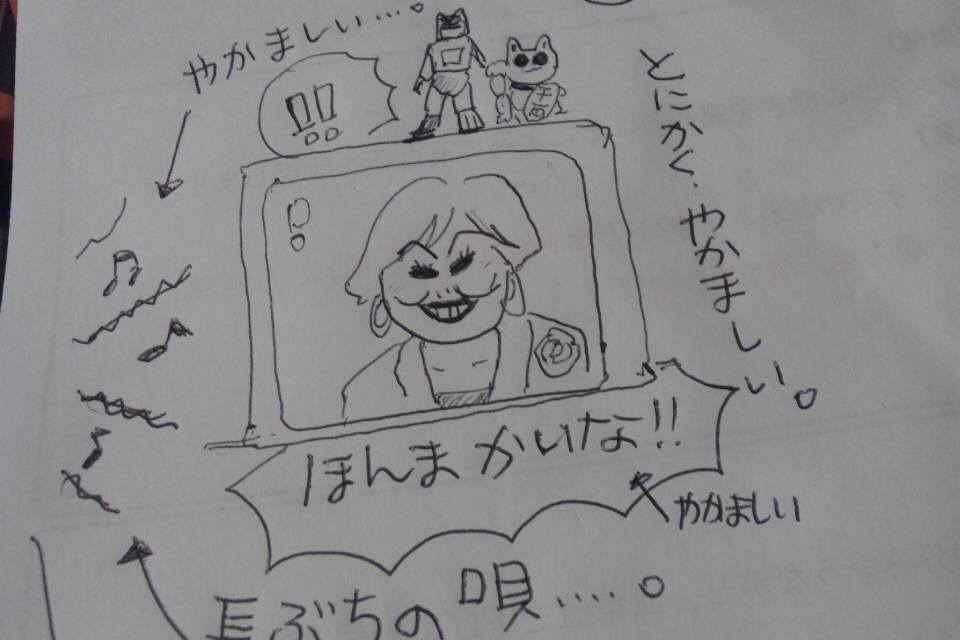 やかましい…。
!!
とにかく、やかましい。
!
ほんまかいな!!
やかましい
長ぶちの唄.....。